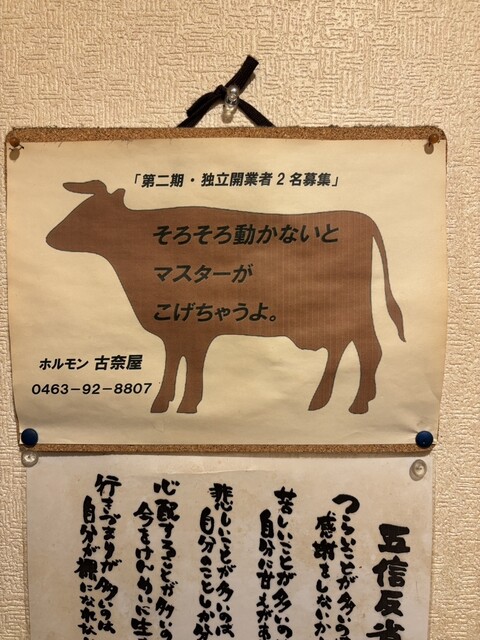 「第二期・独立開業者２名募集」
そろそろ動かないと
マスターが
こげちゃうよ。
ホルモン 古奈屋
0463−92−8807
五信反省
つらいことが多いの
感謝をしないか
苦しいことが多いの
自分に甘えがあ
悲しいことが多いのは
自分のことしか分
心配することが多いの
今をけんめいに生
行きづまりが多いのは
自分が裸になれな